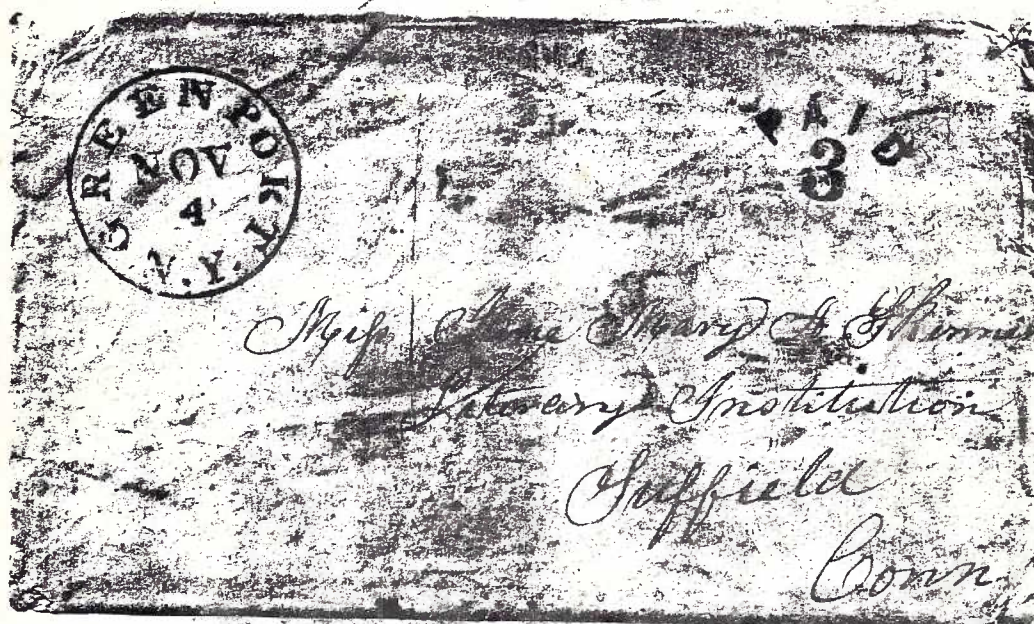 GREENPORT
NOV
4
N.Y.
PAID
3
Miss Mary
Literary Institution
Suffield
Conn.